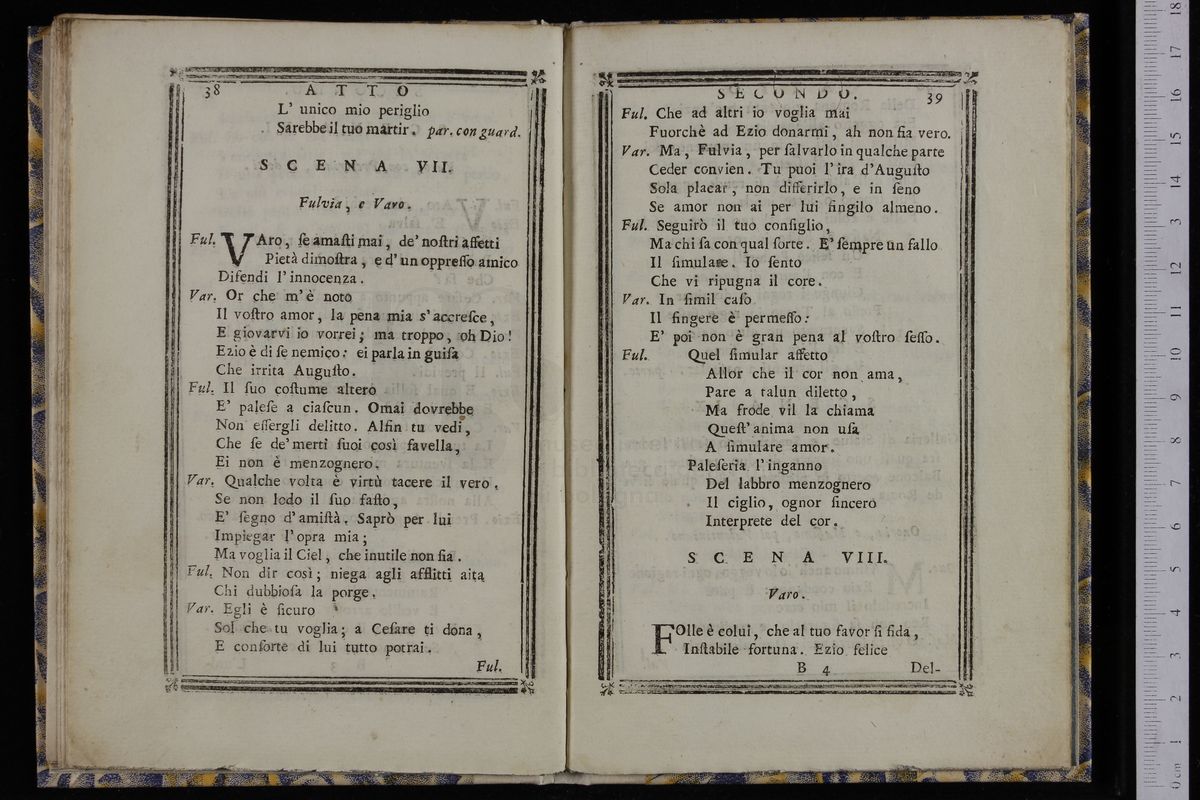 38 ATTO
L' unico mio periglio
Sarebbe il tuo martir. par. con guard.
SCENA VII.
Fulvia, e Varo.
Ful. VAro, ſe amaſti mai, de' noſtri affetti
Pietà dimoſtra, e d' un oppreſſo amico
Difendi l'innocenza.
Var. Or che m'è noto
Il voſtro amor, la pena mia s'accreſce,
E giovarvi io vorrei; ma troppo, oh Dio!
Ezio è di ſe nemico: ei parla in guiſa
Che irrita Auguſto.
Ful. Il ſuo coſtume altero
E' paleſe a ciaſcun. Omai dovrebbe
Non eſſergli delitto. Alfin tu vedi,
Che ſe de' merti ſuoi così favella,
Ei non è menzognero.
Var. Qualche volta è virtù tacere il vero.
Se non lodo il ſuo faſto,
E' ſegno d'amiſtà. Saprò per lui
Impiegar l'opra mia;
Ma voglia il Ciel, che inutile non ſia.
Ful. Non dir così; niega agli afflitti aita
Chi dubbioſa la porge.
Var. Egli è ſicuro
Sol che tu voglia; a Ceſare ti dona,
E conſorte di lui tutto potrai.
Ful.
SECONDO. 39
Ful. Che ad altri io voglia mai
Fuorchè ad Ezio donarmi, ah non ſia vero.
Var. Ma, Fulvia, per ſalvarlo in qualche parte
Ceder convien. Tu puoi l'ira d'Auguſto
Sola placar, non differirlo, e in ſeno
Se amor non ai per lui ſingilo almeno.
Ful. Seguirò il tuo conſiglio,
Ma chi ſa con qual ſorte. E' ſempre un fallo
Il ſimulare. Io ſento
Che vi ripugna il core.
Var. In ſimil caſo
Il fingere è permeſſo:
E' poi non è gran pena al voſtro ſeſſo.
Ful. Quel ſimular affetto
Allor che il cor non ama,
Pare a talun diletto,
Ma frode vil la chiama
Queſt' anima non uſa
A ſimulare amor.
Paleſeria l'inganno
Del labbro menzognero
Il ciglio, ognor ſincero
Interprete del cor.
SCENA VIII.
Varo.
FOlle è colui, che al tuo favor ſi fida,
Inſtabile fortuna. Ezio felice
B 4 Del-